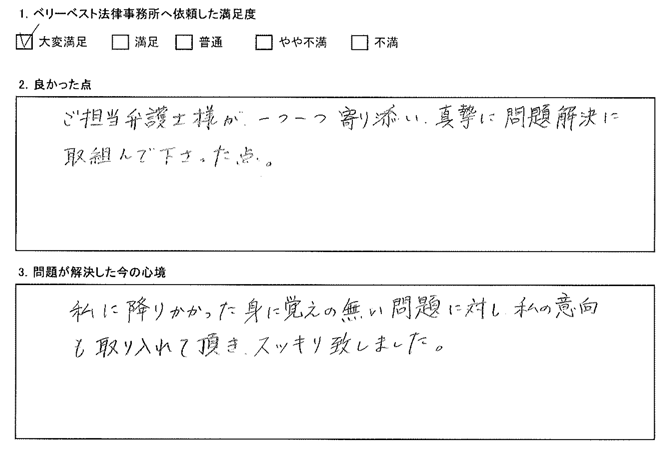 1. ベリーベスト法律事務所へ依頼した満足度
大変満足 満足 普通 やや不満 不満
2. 良かった点
ご担当弁護士様が、一つ一つ寄り添い、真摯に問題解決に
取組んで下さった点。
3. 問題が解決した今の心境
私に降りかかった身に覚えの無い問題に対し、私の意向
も取り入れて頂き、スッキリ致しました。